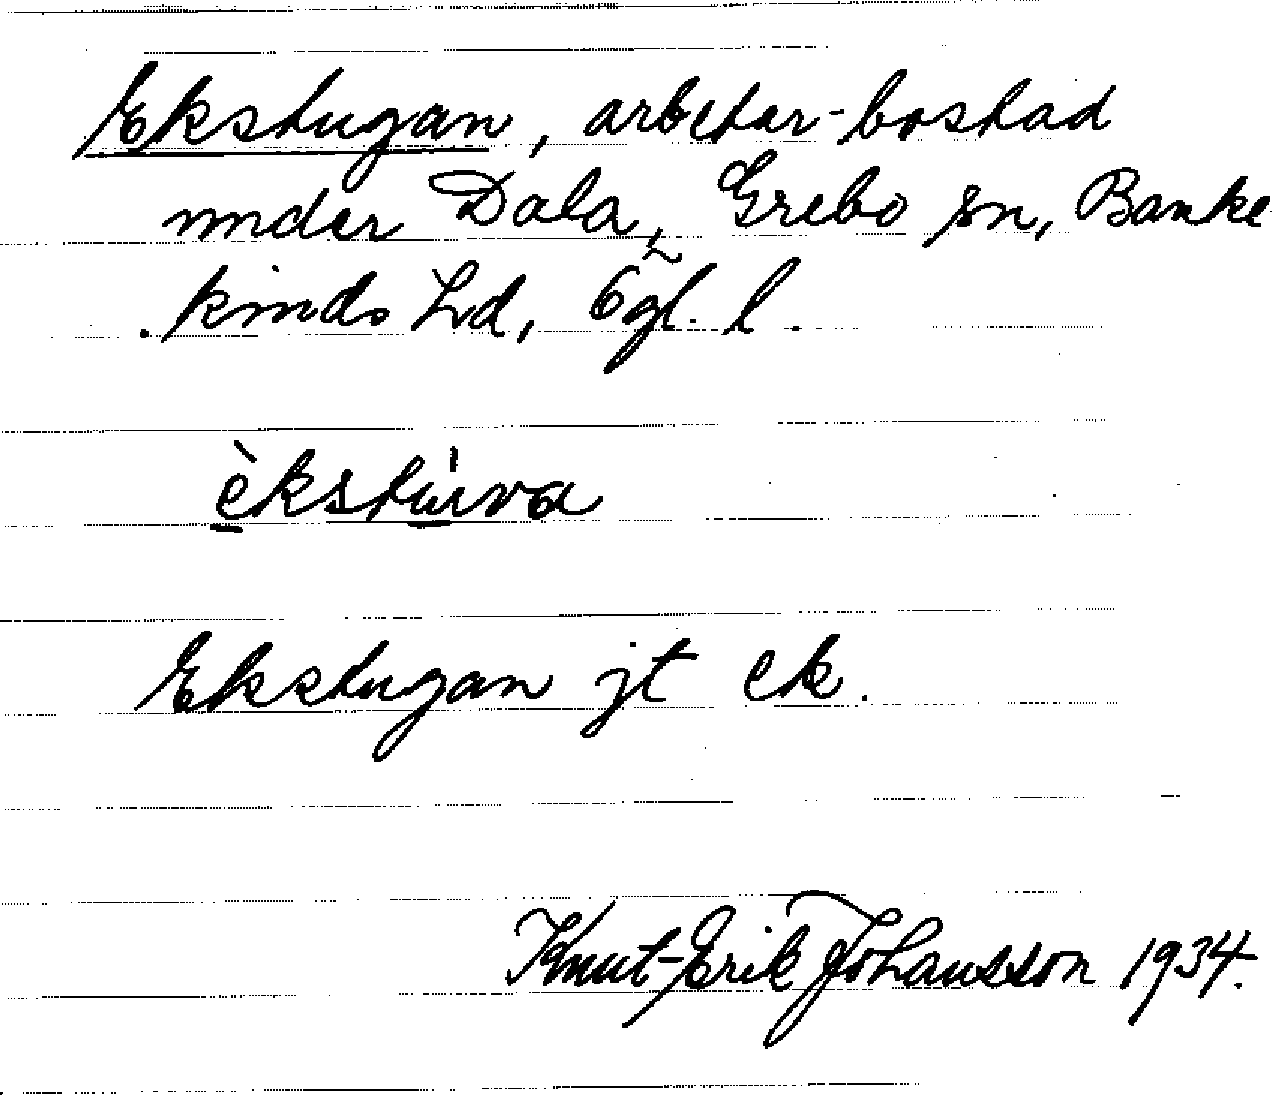 Ekstugan, arbetar-bostad
under Dala, Grebo sn, Banke
kinds hd, Ögl. l.
èkstu̇va
Ekstugan jt ek.
Knut-Erik Johansson 1934.